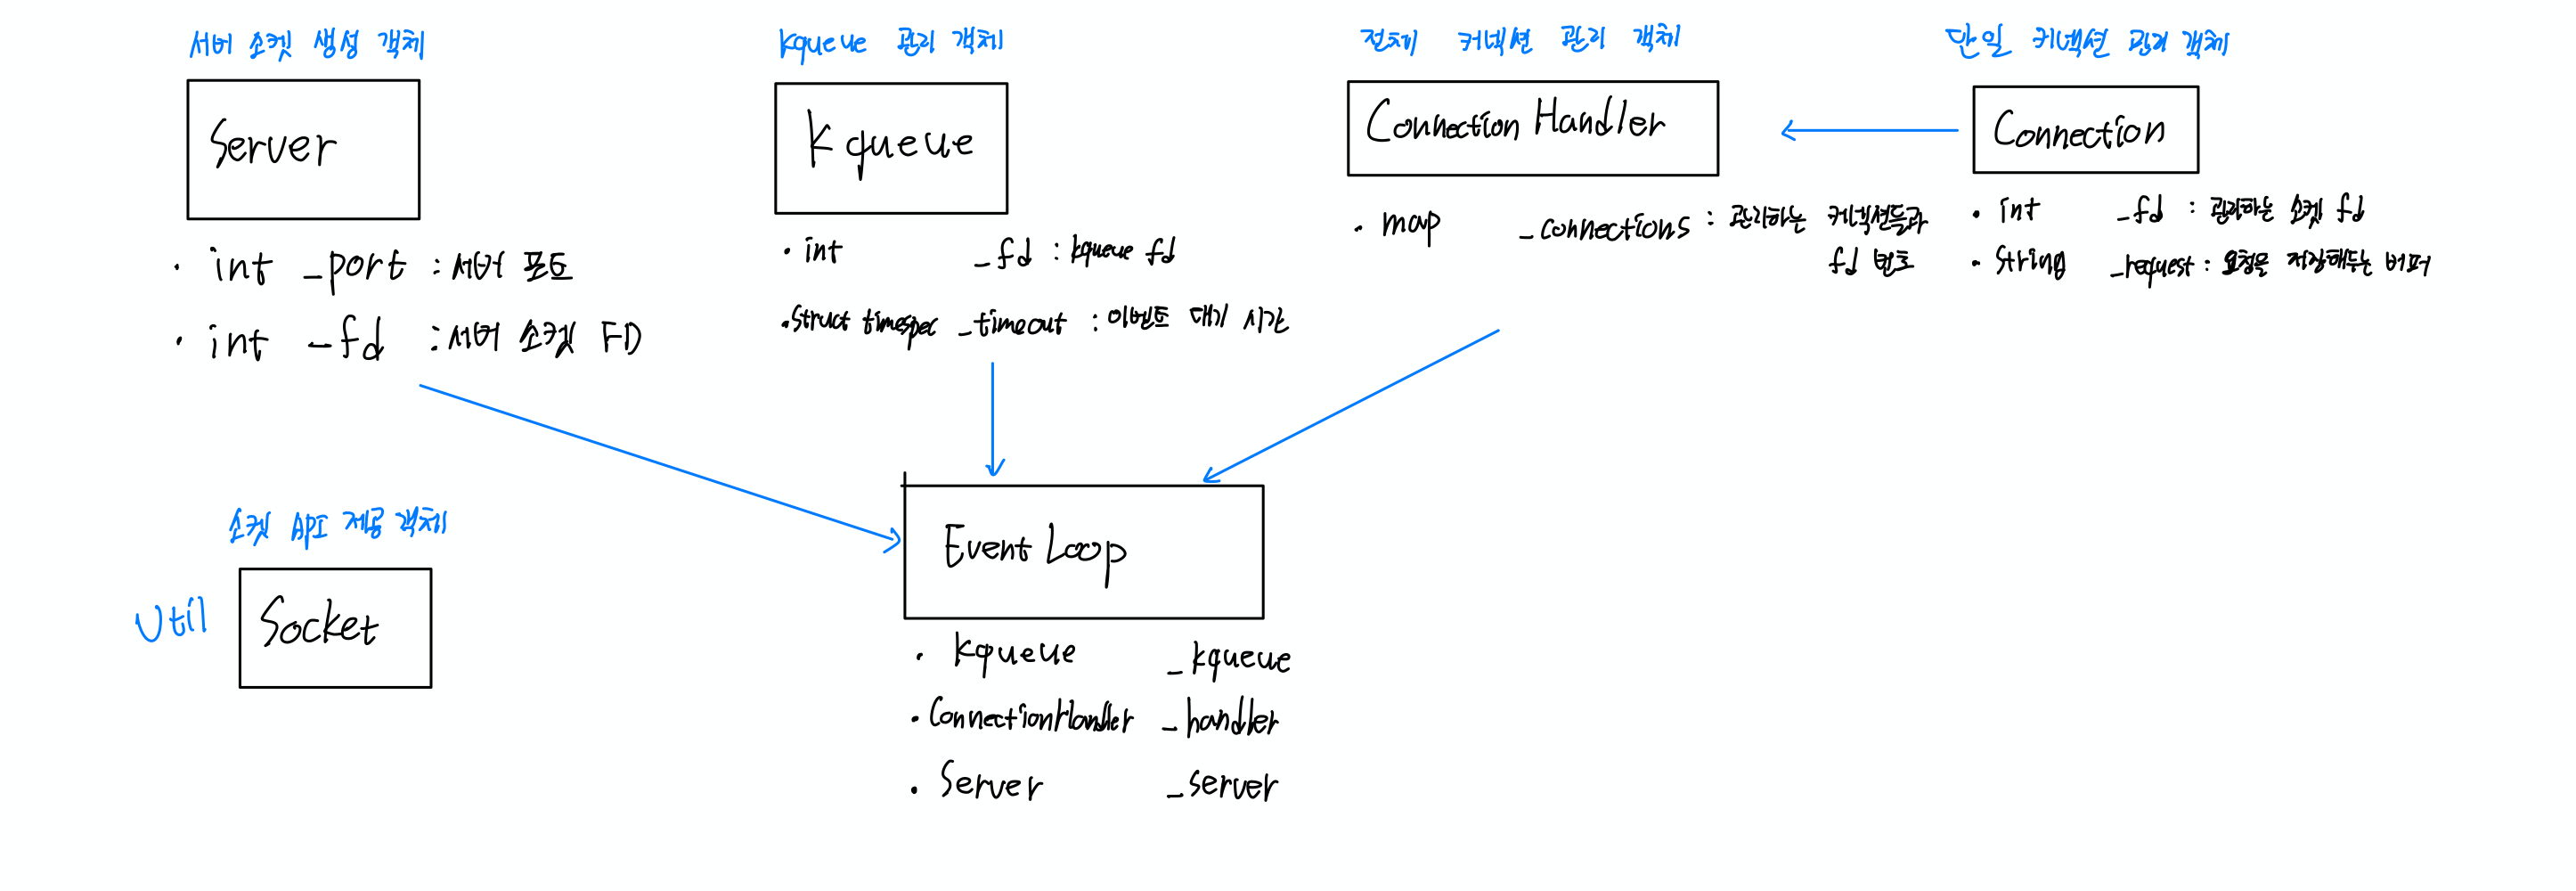 서버 소켓 생성 객체
Server
· int _port : 서버 포트
· int _fd : 서버 소켓 FD
kqueue 관리 객체
Kqueue
· int _fd : kqueue fd
· struct timespec _timeout : 이벤트 대기 시간
전체 커넥션 관리 객체
Connection Handler
· map _connections : 관리하는 커넥션들과
fd 번호
단일 커넥션 관리 객체
Connection
· int _fd : 관리하는 소켓 fd
· string _request : 요청을 저장해두는 버퍼
소켓 API 제공 객체
Util
Socket
Event Loop
· Kqueue _kqueue
· ConnectionHandler _handler
· Server _server